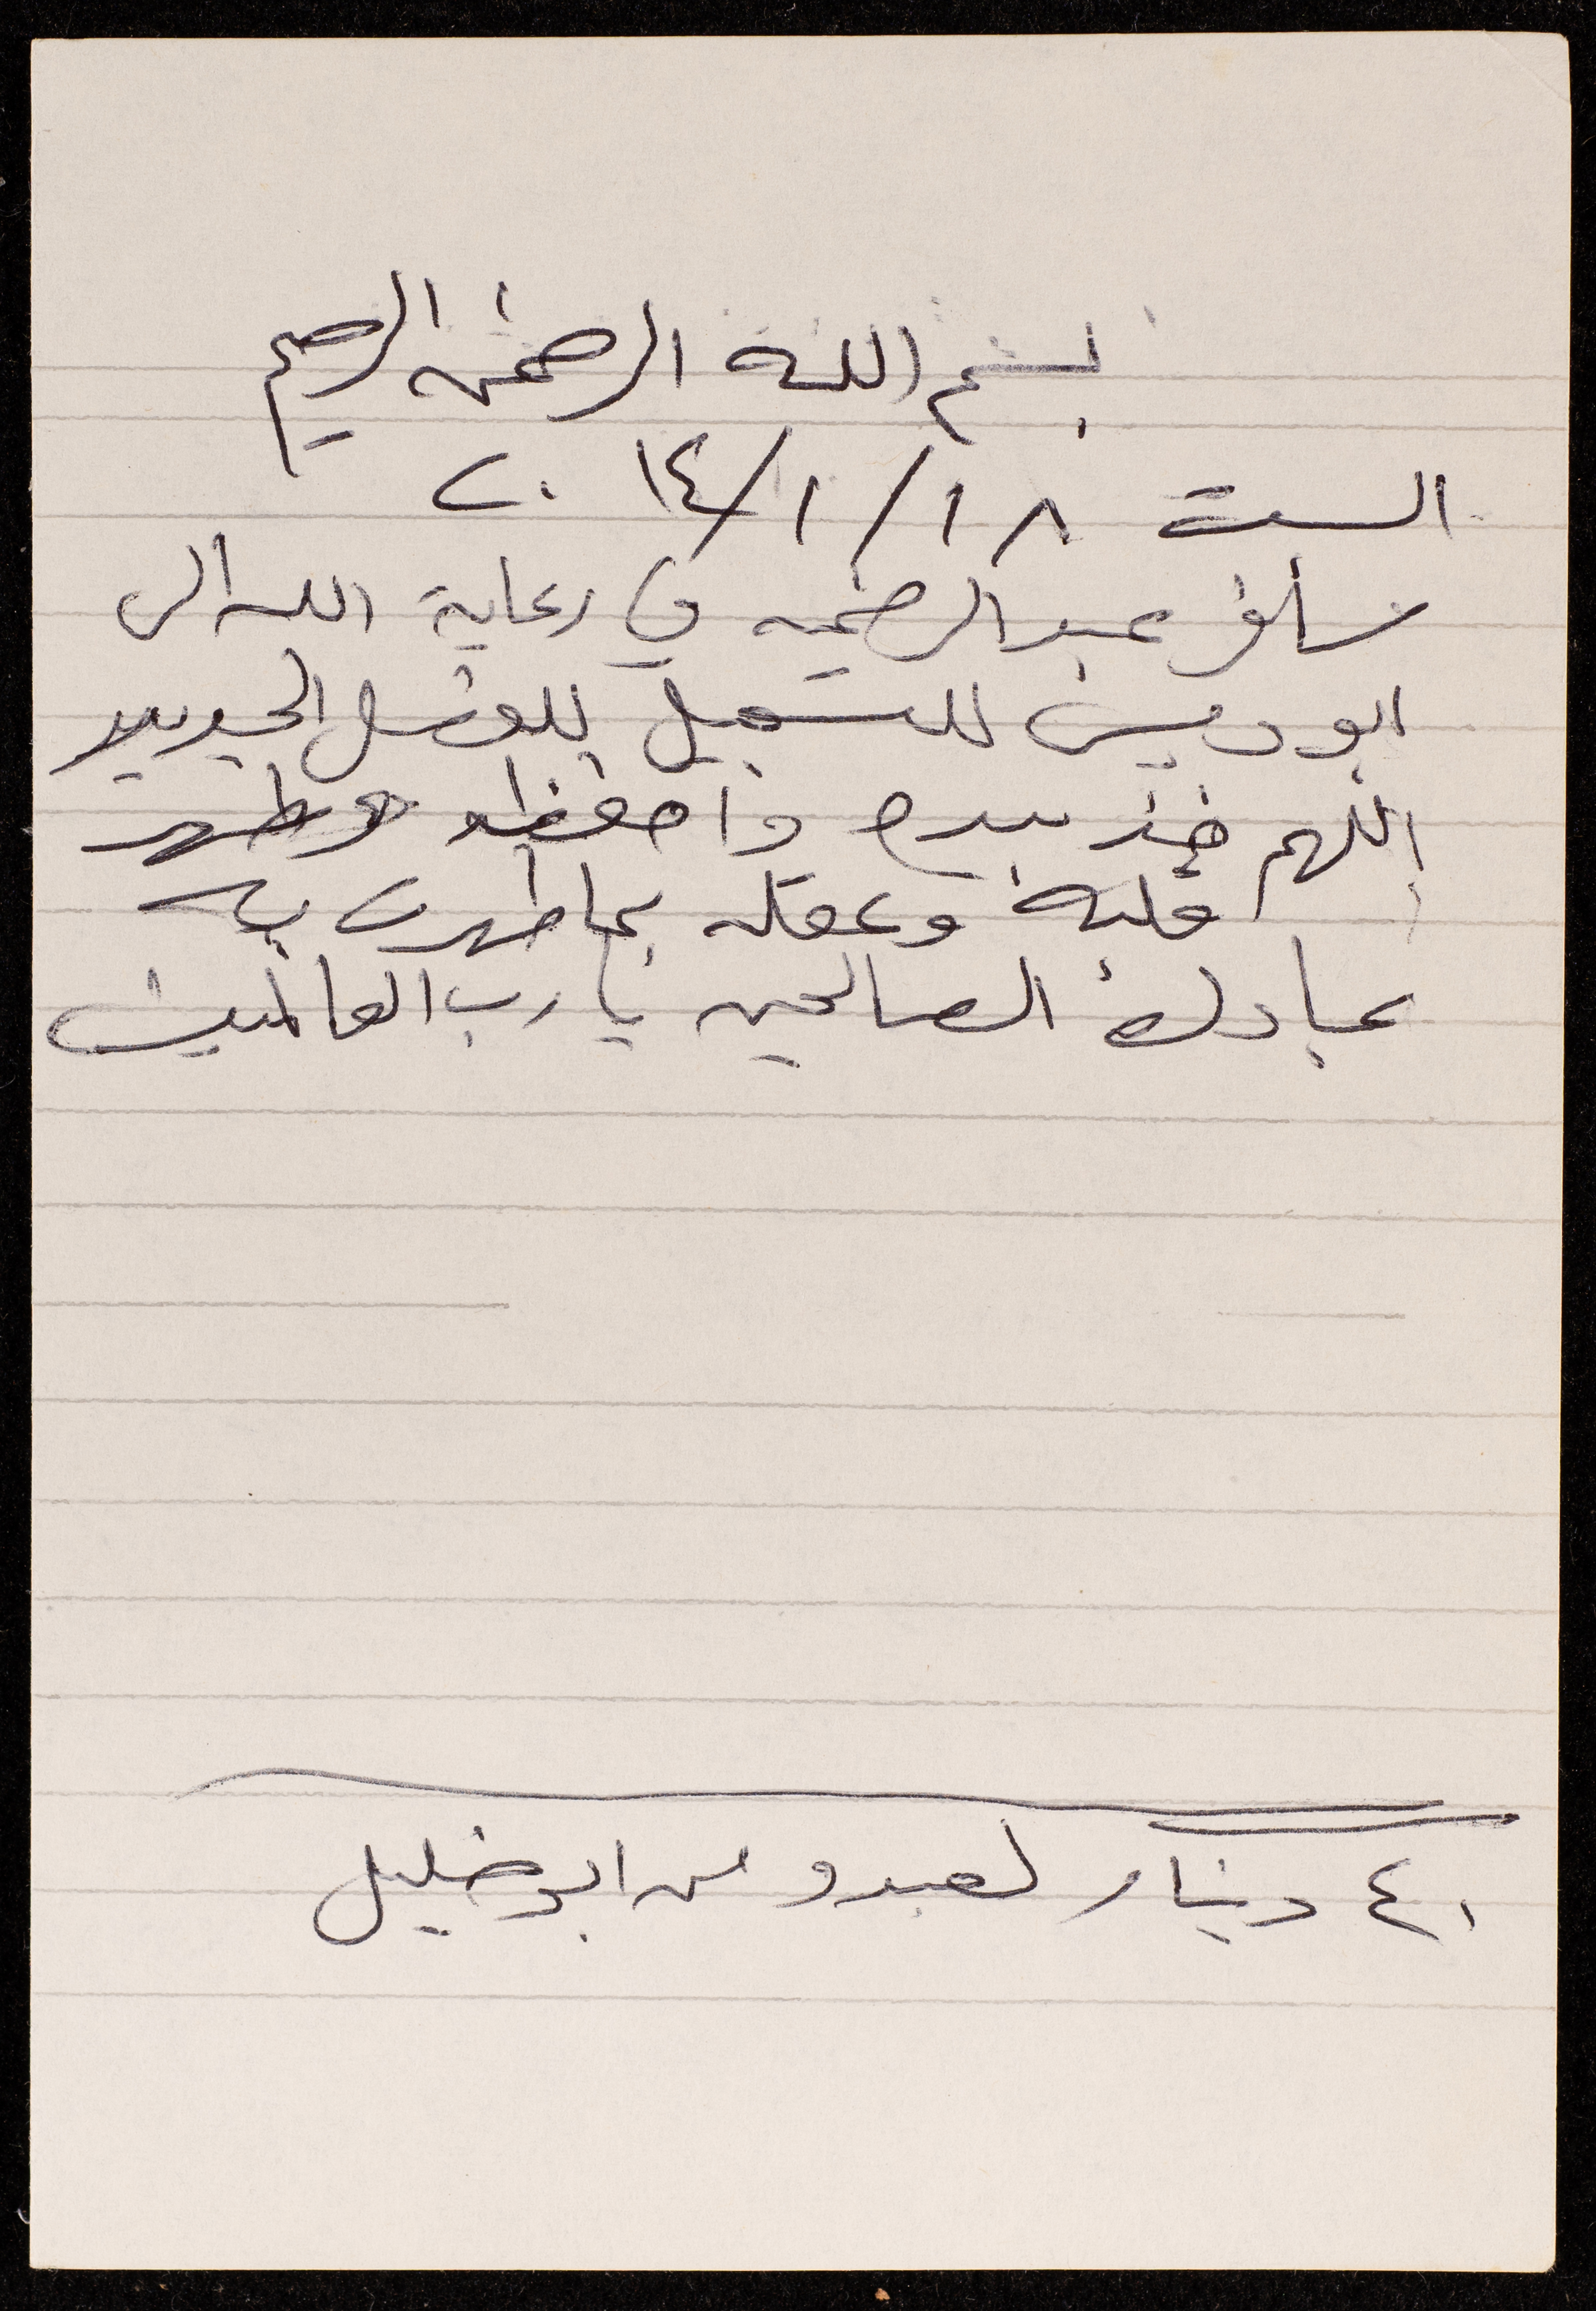 بسم الله الرحمن الرحيم
السبت ١٨/١/٢٠١٤
سافر عبد الرحمن في رعاية الله الى
ابوديس للتسجيل للفصل الجديد
اللهم خذ بيده واحفظه وطهر
قلبه وعقله بما طهرت به
عبادك الصالحين يا رب العالمين
٤٠ دينار لعبدو من ابو خليل